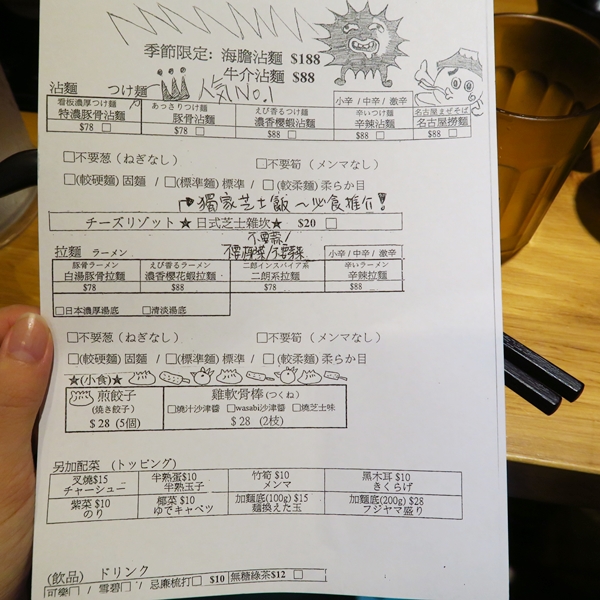 季節限定: 海膽沾麵 $188
牛介沾麵 $88
沾麵 つけ麺 人気No.1
小辛 / 中辛 / 激辛
看板濃厚つけ麺 あっさりつけ麺 えび香るつけ麺 辛いつけ麺 名古屋まぜそば
特濃豚骨沾麵 豚骨沾麵 濃香櫻蝦沾麵 辛辣沾麵 名古屋撈麵
$78 □ $78 □ $88 □ $88 □ $88 □
□不要葱 (ねぎなし) □不要筍 (メンマなし)
□(較硬麵) 固麵 / □(標準麵) 標準 / □(較柔麵) 柔らか目
獨家芝士飯~必食推介!
チーズリゾット ★ 日式芝士雜炊★ $20 □
不要蒜/
拉麵 ラーメン
小辛 / 中辛 / 激辛
豚骨ラーメン えび香るラーメン 二郎インスパイア系 辛いラーメン
白湯豚骨拉麵 濃香櫻花蝦拉麵 二朗系拉麵 辛辣拉麵
$78 $88 $78 $88
□日本濃厚湯底 □清淡湯底
□不要葱 (ねぎなし) □不要筍 (メンマなし)
□(較硬麵) 固麵 / □(標準麵) 標準 / □(較柔麵) 柔らか目
★(小食)★
煎餃子 雞軟骨棒 (つくね)
(焼き餃子) □燒汁沙津醬 □wasabi沙津醬 □燒芝士味
$ 28 (5個) $ 28 (2枝)
另加配菜 (トッピング)
叉燒$15 半熟蛋$10 竹筍 $10 黑木耳 $10
チャーシュー 半熟玉子 メンマ きくらげ
紫菜 $10 椰菜 $10 加麵底(100g) $15 加麵底(200g) $28
のり ゆでキャベツ 麺換えた玉 フジヤマ盛り
(飲品) ドリンク
可樂□ / 雪碧□ / 忌廉梳打□ $10 無糖綠茶$12 □